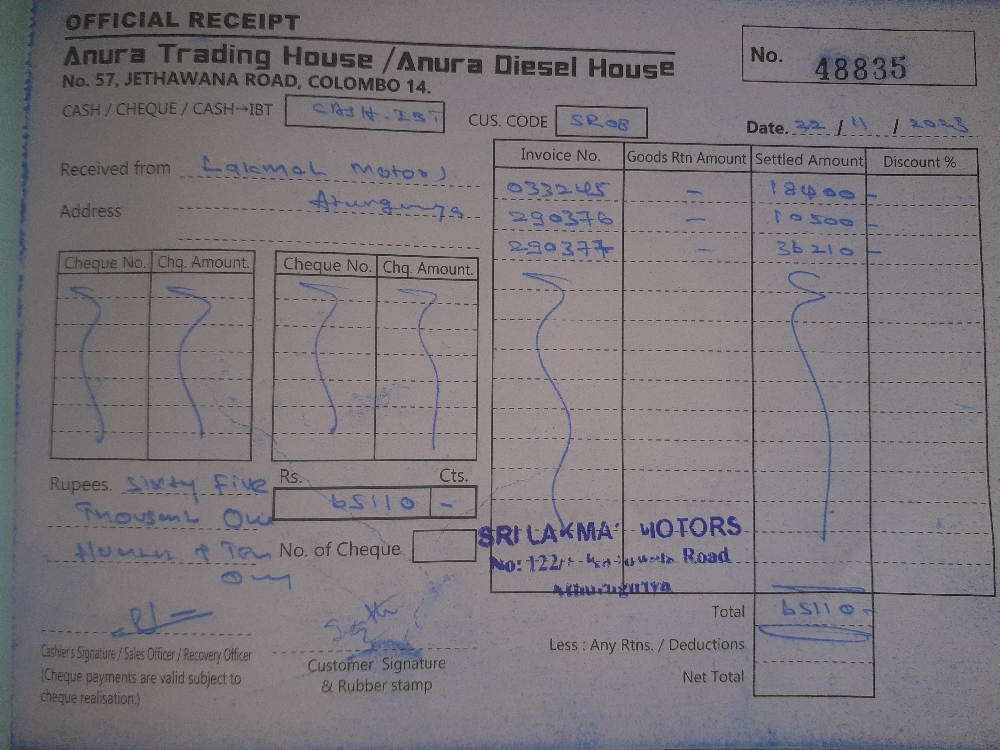 OFFICIAL RECEIPT
Anura Trading House /Anura Diesel House
No. 57, JETHAWANA ROAD, COLOMBO 14.
No. 48835
CASH / CHEQUE / CASH→IBT CASH.IBT
CUS. CODE SR08
Date. 22 / 11 / 2023
Received from Lakmal Motors
Address
Invoice No. Goods Rtn Amount Settled Amount Discount %
033245 – 18400 –
290376 – 10500 –
290377 – 36210 –
Cheque No. Chq. Amount. Cheque No. Chq. Amount.
Rupees. Sixty Five
Thousand One
Hundred & Ten
Only
Rs. Cts.
65110 –
No. of Cheque
SRI LAKMA MOTORS
No: 122 Road
Total 65110 –
Less : Any Rtns. / Deductions
Net Total
Cashier's Signature / Sales Officer / Recovery Officer
(Cheque payments are valid subject to
cheque realisation.)
Customer Signature
& Rubber stamp